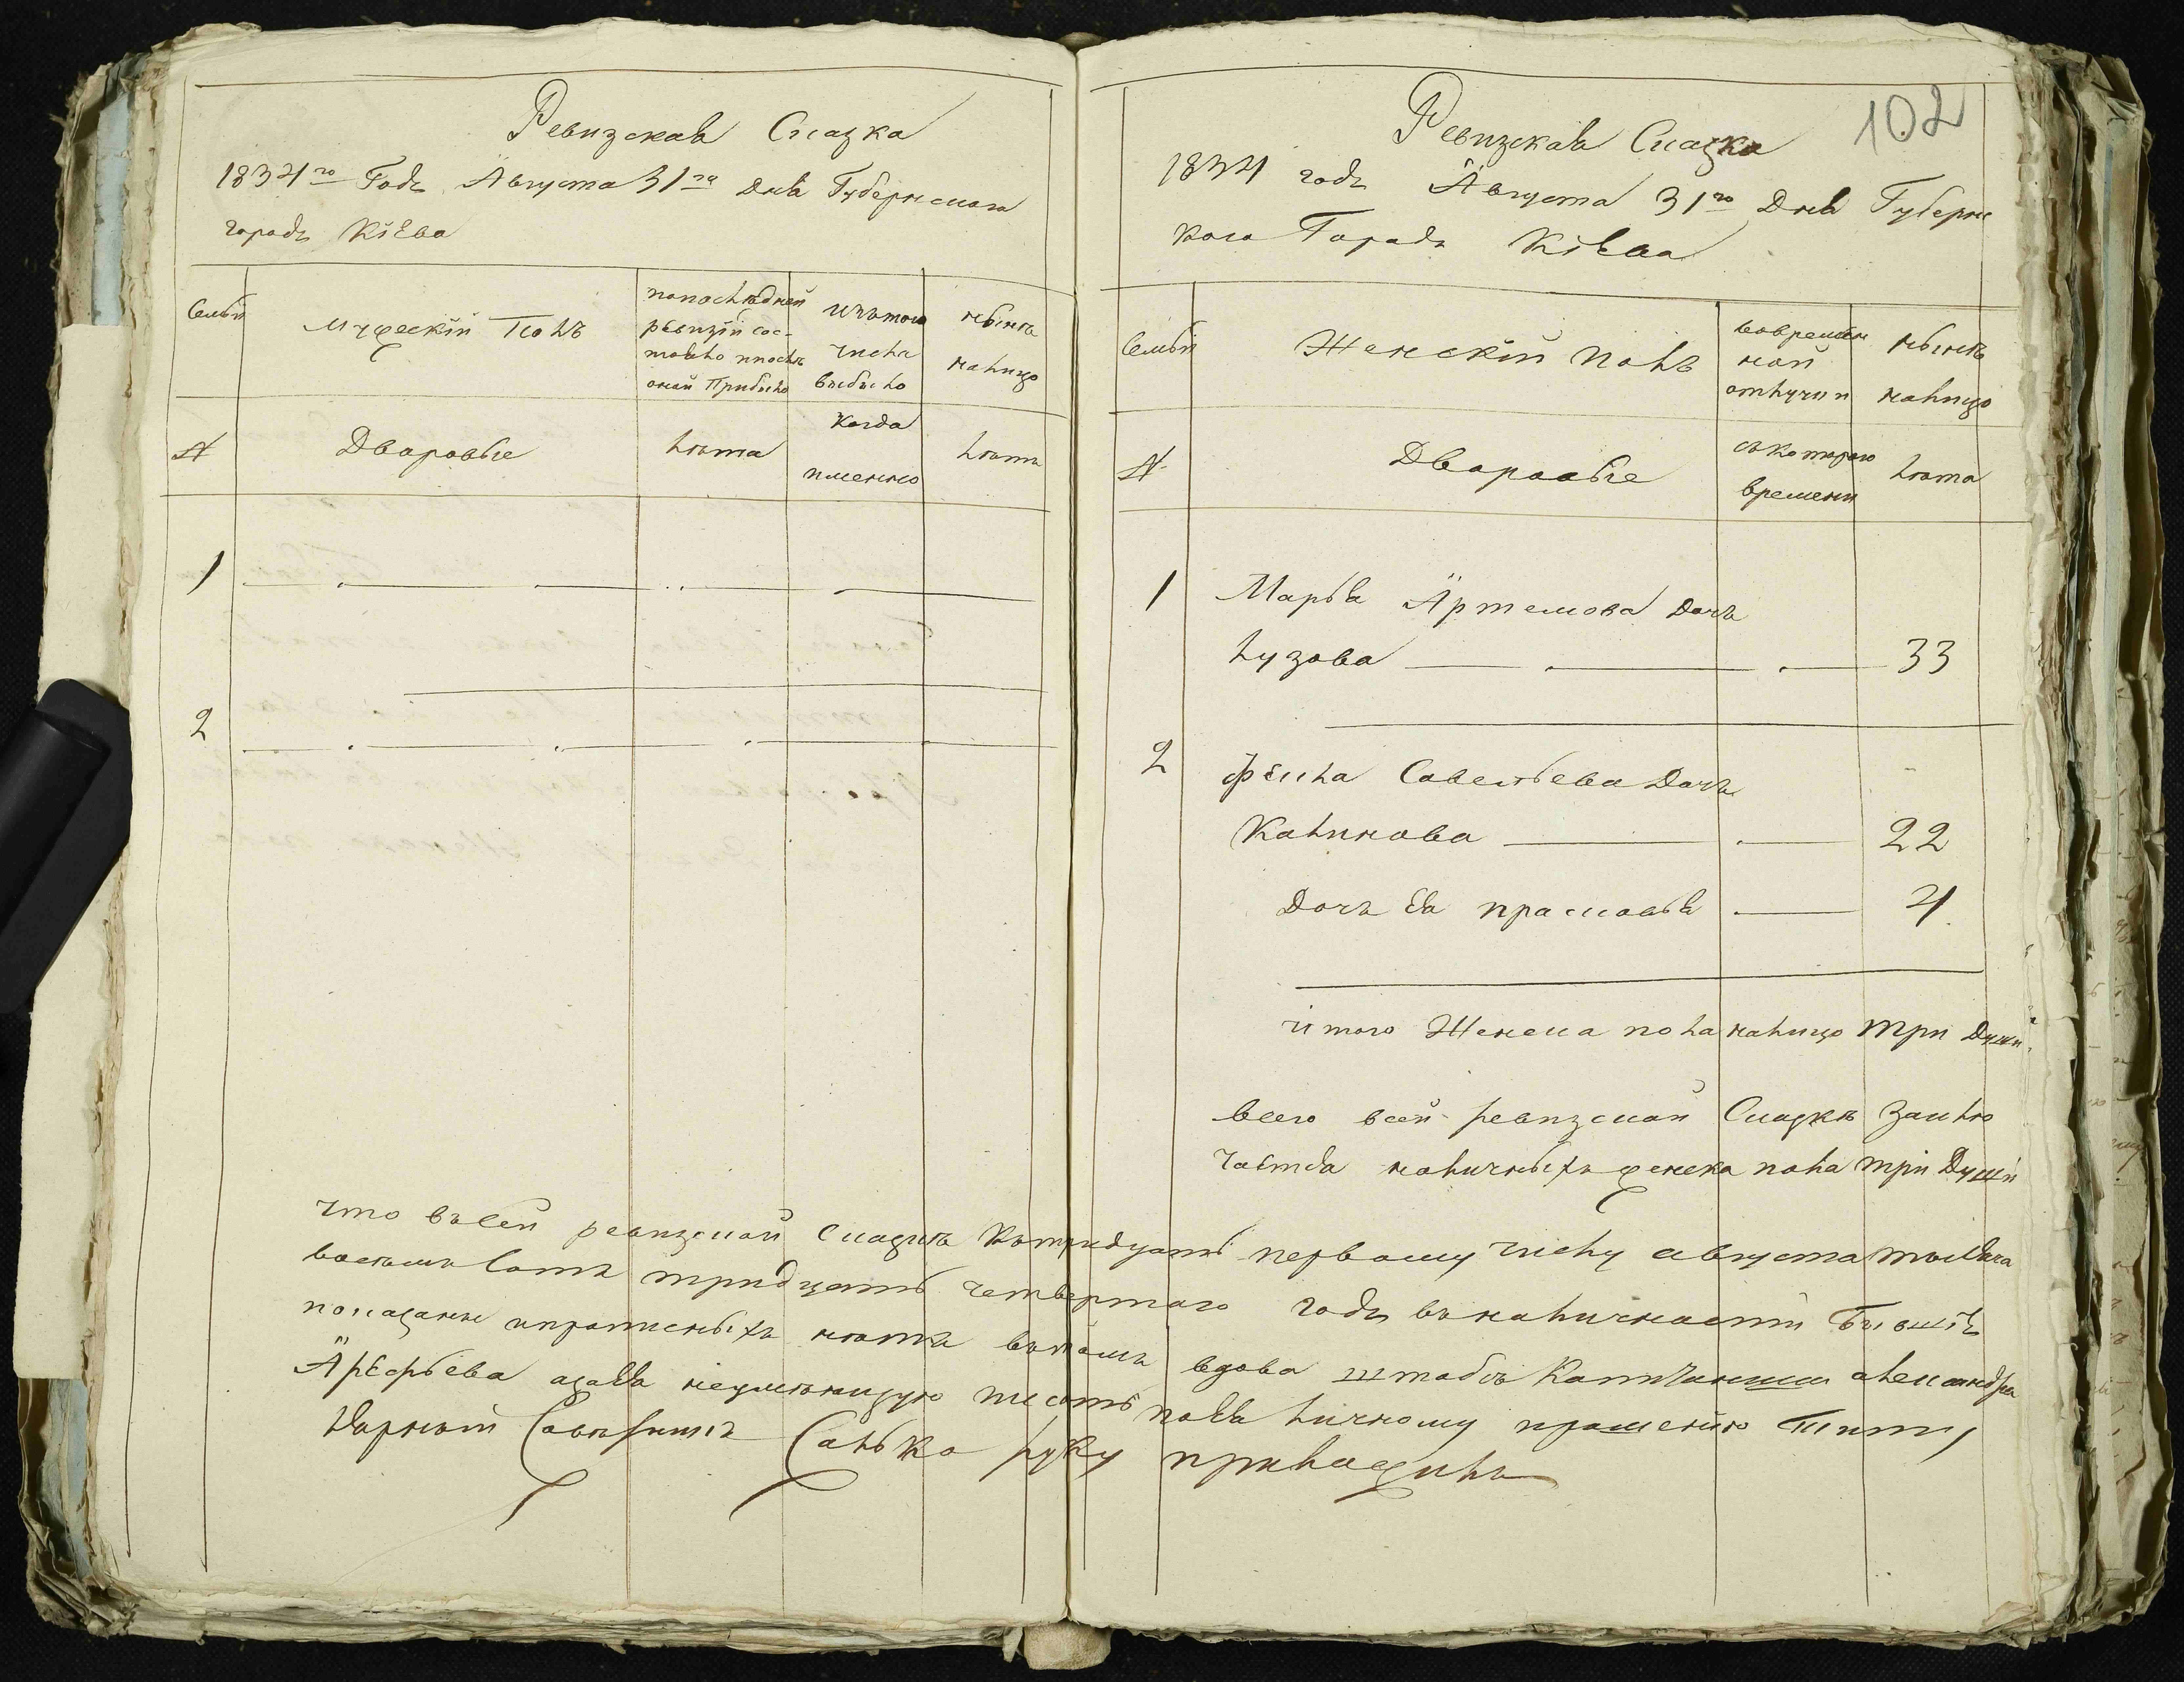 Ревизская Сказка
1834го Годъ Августа 31го Дня Губернскога
городъ Кіева
Семьи
Мужескій Полъ
попослѣдней
ревизіи сос-
тояло ипослѣ
оной Прибыло
изътого
числа
выбыло
нынѣ
налицо
№
Дворовые
лѣта
Когда
именно
лѣтъ
1
2
102
Ревизская Сказка
1834 годъ Августа 31го Дня Губернс
кого Городъ Кіева
Семьи
Женскій полъ
вовремен
ной
отлучки
нынѣ
налицо
№
Дворовые
съкоторого
времени
лѣта
1 Марья Артемова дочь
лузова 33
2 фёкла Савельева Дочь
Калинова 22
Дочь Ея прасковья 4
итого Женска пола налицо три Души
всего всей ревизской Сказкѣ заклю
чается наличныхъ женска пола три Души
что въсей ревизской Сказкѣ Кътридцать первому числу августа тысяча
восемь Сотъ тридцать четвертого годъ въналичности бывшіе
показаны ипрописныхъ нѣтъ вътомъ вдова штабсъ Капитанша александра
Арефьева азаея неумеющую писать поея личному прошению Титу
лярный Советникъ Салько руку приложилъ